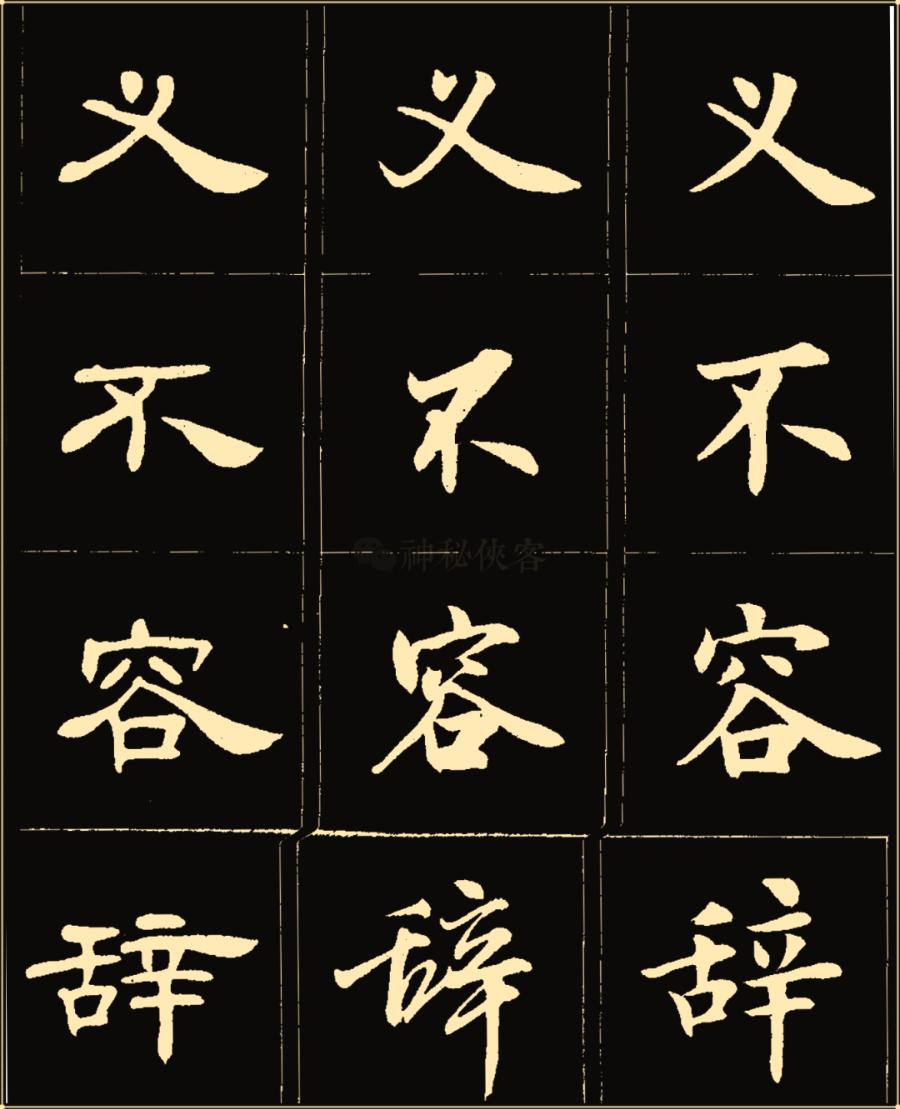 义 义 义
不 不 不
神秘俠客
容 容 容
辞 辞 辞